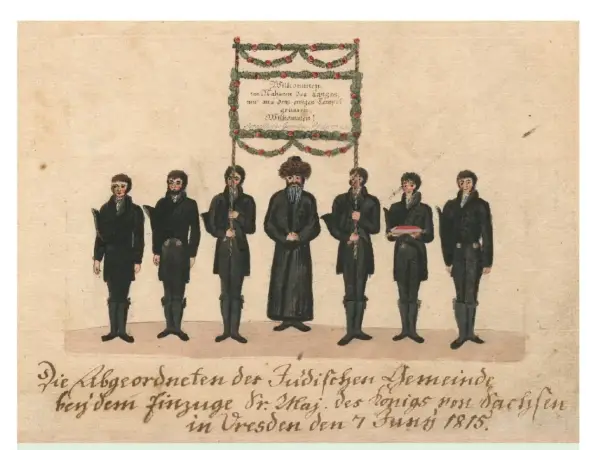 Willkommen
im Nahmen des Ewigen,
wir aus dem ewigen Tempel
grüssen
Willkommen!
Die Abgeordneten der Jüdischen Gemeinde
beÿ dem Einzuge Sr. Maj. des Königs von Sachsen
in Dresden den 7 Junÿ 1815.